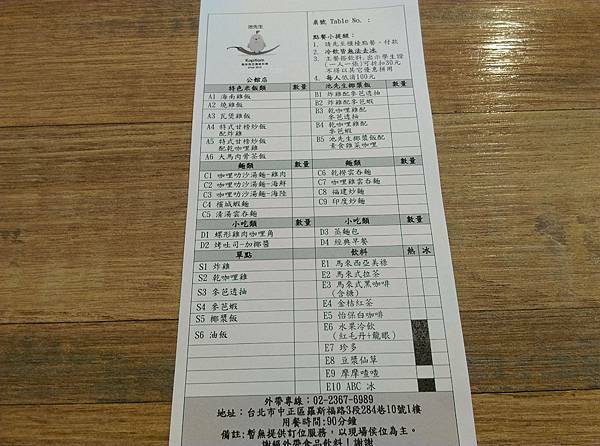 池先生
Kopitiam
公館店
桌號 Table No. :
點餐小提醒:
1. 請先至櫃檯點餐、付款
2. 冷飲皆無法去冰
3. 主餐搭飲料,出示學生證
(一人一張)可折扣30元
不得以其它優惠併用
4. 每人低消100元
特色米飯類 數量
A1 海南雞飯
A2 燒雞飯
A3 瓦煲雞飯
A4 特式甘榜炒飯
配炸雞
A5 特式甘榜炒飯
配乾咖哩雞
A6 大馬肉骨茶飯
池先生椰漿飯 數量
B1 炸雞配麥芭透抽
B2 炸雞配麥芭蝦
B3 乾咖哩雞配
麥芭透抽
B4 乾咖哩雞配
麥芭蝦
B5 池先生椰漿飯配
素食雜菜咖哩
麵類 數量
C1 咖哩叻沙湯麵-雞肉
C2 咖哩叻沙湯麵-海鮮
C3 咖哩叻沙湯麵-海陸
C4 檳城蝦麵
C5 清湯雲吞麵
麵類 數量
C6 乾撈雲吞麵
C7 咖哩雞雲吞麵
C8 福建炒麵
C9 印度炒麵
小吃類 數量
D1 螺形雞肉咖哩角
D2 烤吐司-加椰醬
小吃類 數量
D3 蒸麵包
D4 經典早餐
單點
S1 炸雞
S2 乾咖哩雞
S3 麥芭透抽
S4 麥芭蝦
S5 椰漿飯
S6 油飯
飲料 熱 冰
E1 馬來西亞美祿
E2 馬來式拉茶
E3 馬來式黑咖啡
(含糖)
E4 金桔紅茶
E5 怡保白咖啡
E6 水果冷飲
(紅毛丹+龍眼)
E7 珍多
E8 豆漿仙草
E9 摩摩喳喳
E10 ABC 冰
外帶專線:02-2367-6989
地址:台北市中正區羅斯福路3段284巷10號1樓
用餐時間:90分鐘
備註:暫無提供訂位服務,以現場侯位為主。
謝絕外帶食品飲料!謝謝